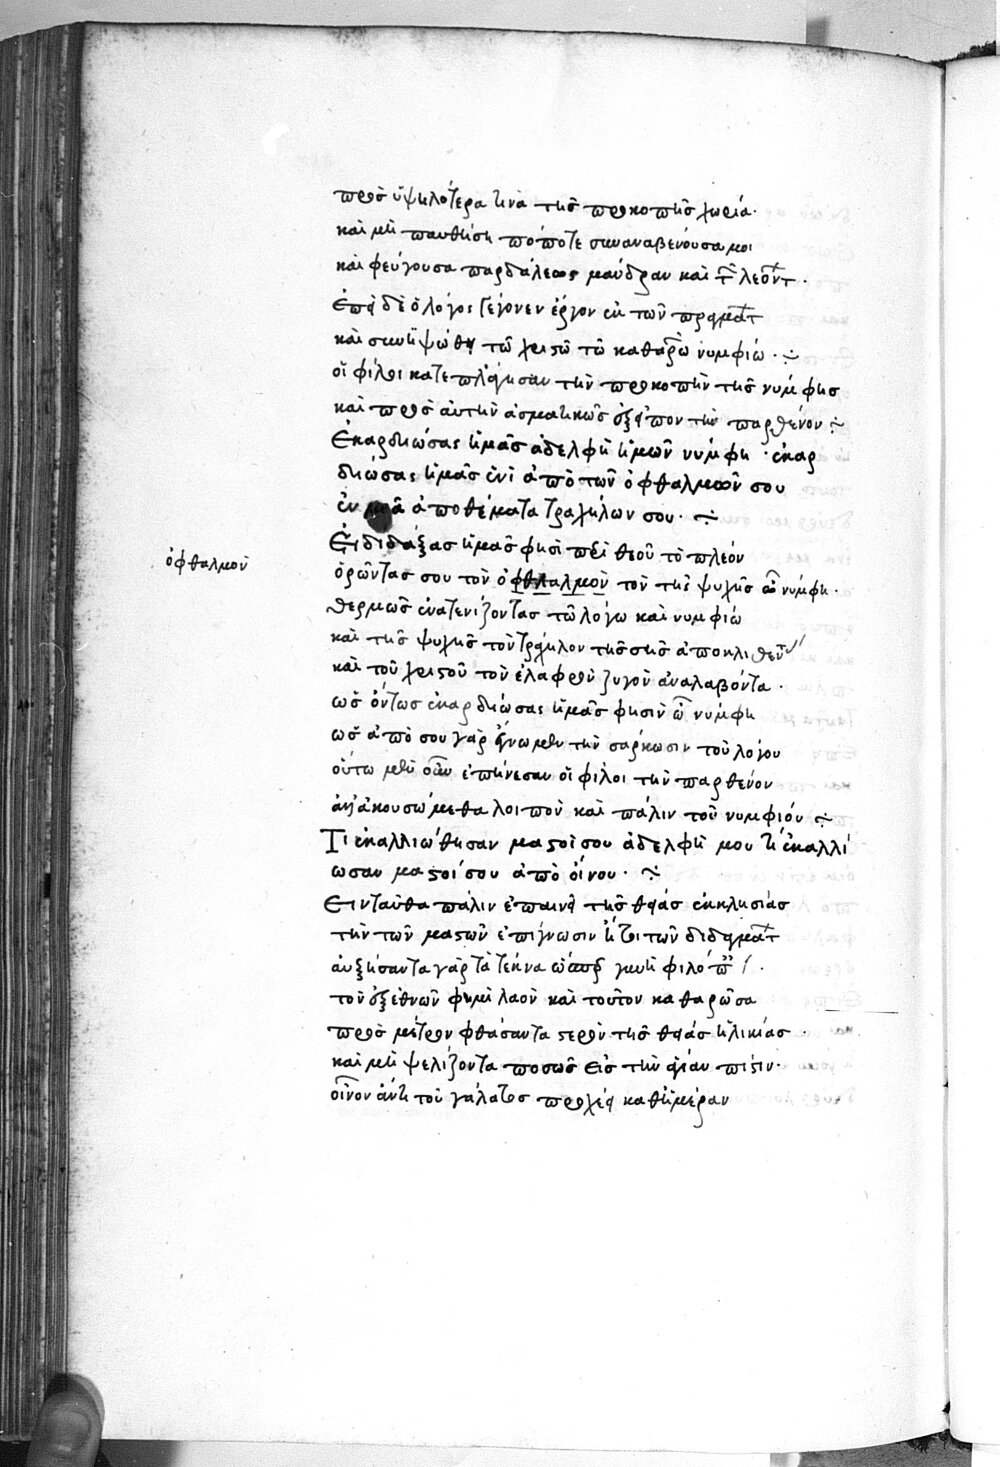 πρὸς ὑψηλότερα τινὰ τῆς προκοπῆς χωρία·
καὶ μὴ παυθείση πώποτε συναναβενόυσα μοι
καὶ φεύγουσα παρδάλεως μάνδραν καὶ τ λεόντ·
Ἐπεὶ δὲ ὁ λόγος γέγονεν ἔργον ἐκ τῶν πραγμάτ
καὶ συνήφθη τῶ χριστῶ τῶ καθαρῶ νυμφίω·
οἱ φίλοι κατεπλάγησαν τὴν προκοπὴν τῆς νύμφης
καὶ πρὸς ἀυτὴν ἀσματικῶς ἐξεῖπον τὴν παρθένον
Ἐκαρδιώσας ἡμᾶς ἀδελφὴ ἡμῶν νύμφη· ἐκαρ
διώσας ἡμᾶς ἑνὶ ἀπὸ τῶν ὀφθαλμῶν σου
ἐν μιᾶ ἀποθέματα τραχήλων σου·
Ἐδίδαξας ἡμᾶς φησὶ περὶ θεοῦ τὸ πλεόν
ὀφθαλμὸν
ὁρῶντας σου τὸν ὀφθαλμὸν τὸν τῆς ψυχῆς ὦ νύμφη·
θερμῶς ἐνατενίζοντας τῶ λόγω καὶ νυμφίω
καὶ τῆς ψυχῆς τὸν τράχηλον τῆς σῆς ἀποκλιθέν
καὶ τοῦ χριστοῦ τὸν ἐλαφρὸν ζυγὸν ἀναλαβόντα·
ὡς ὄντως ἐκαρδιώσας ἡμᾶς φησὶν ὦ νύμφη
ὡς ἀπὸ σου γὰρ ἔγνωμεν τὴν σάρκωσιν τοῦ λόγου
οὕτω μὲν οὖν ἐπήνεσαν οἱ φίλοι τὴν παρθένον
ἀντακουσώμεθα λοιπὸν καὶ πάλιν τοῦ νυμφίου
Τί ἐκαλλιώθησαν μαστοί σου ἀδελφή μου τί ἐκαλλι
ωσαν μαστοί σου ἀπὸ οἴνου·
Ἐνταῦθα πάλιν ἐπαινεῖ τῆς θείας ἐκκλησίας
τὴν τῶν μαστῶν ἐπίγνωσιν ἤτοι τῶν διδαγμάτ
ἀυξήσαντα γὰρ τὰ τέκνα
τὸν ἐξεθνῶν φημὶ λαὸν καὶ τοῦτον καθαρῶσα
πρὸς μέτρον φθάσαντα στερὸν τῆς θείας ἡλικίας
καὶ μὴ ψελίζοντα ποσῶς εἰς τὴν ἁγίαν πίστιν·
οἶνον ἀντὶ τοῦ γάλακτος προχέει καθημέραν